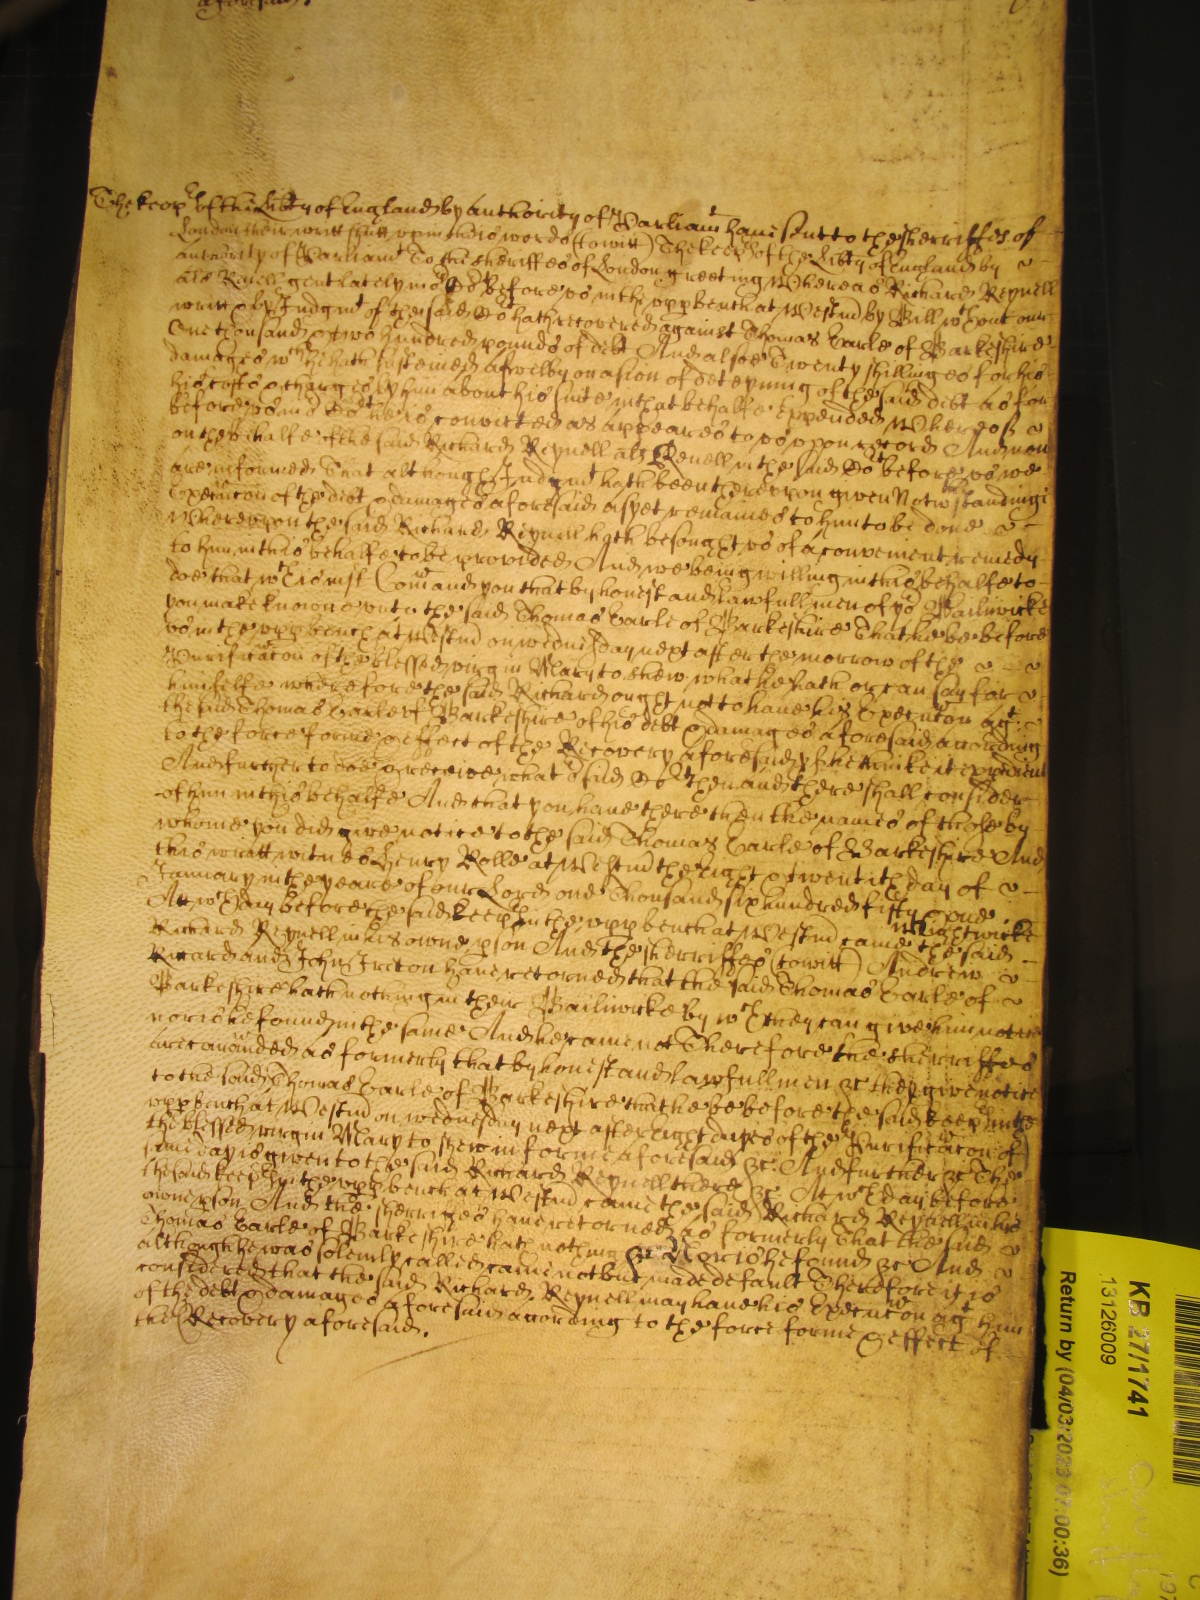 aforesaid.
The keep's of the Lib'ty of England by authority of Parliam't have sent to the Sherriffes of
London their writt shutt upp in this words (towitt) The keep's of the Lib'ty of England by
authority of Parliam't To the Sheriffes of London greeting Whereas Richard Reynell
als Renell gent lately in o' Co't before us in the upp bench at Westm'd by Bill w'thout our
writt & by Judgm't of the said Co't hath recovered against Thomas Earle of Barkeshire
One thousand & two hundred pounds of debt And alsoe Twenty shillinges for his
damages w'ch he hath susteined aswell by occasion of deteyning of the said debt as for
his costs & charges by him about his suite in that behalfe Expended Whereof
before us in o' Co't he is convicted as appeares to us uppon record And now
on the behalfe of the said Richard Reynell als Renell in the said Co't before us we
are informed That although Judgm't hath been thereupon given Notw'thstanding
Execucon of the debt & damages aforesaid as yet remaines to him to be done
Whereupon the said Richard Reynell hath besought us of a convenient remedy
to him in this behalfe to be provided And we being willing in this behalfe to
doe that w'ch is just Com'and you that by honest and lawfull men of yo' Bailiwicke
you make knowne unto the said Thomas Earle of Barkeshire That he be before
us in the upp bench at Westm'd on wednesday next after the morrow of the
Purificacon of the blessed virgin Mary to shew what he hath or can say for
himselfe wherefore the said Richard ought not to have his Execucon ag't
the said Thomas Earle of Barkeshire of his debt & damages aforesaid according
to the force forme & effect of the Recovery aforesaid yf he thinke it expedient
And further to doe & receive what o' said Co't then and there shall consider
of him in this behalfe And that you have there then the names of those by
whome you did give notice to the said Thomas Earle of Barkeshire And
this writt witnes Henry Rolle at Westm'd the Eight & twentith day of
January in the yeare of our Lord one Thousand six hundred fifty & one
At w'ch day before the said keep's in the upp bench at Westm'd came the said
Richard Reynell in his owne p'son And the Sherriffes (towitt) Andrew
Ricard and John Ireton have retorned that the said Thomas Earle of
Barkeshire hath nothing in their Bailiwicke by w'ch they can give him notice
nor is he found in the same And he came not Therefore the Sherriffes
are com'anded as formerly that by honest and lawfull men &c they give notice
to the said Thomas Earle of Barkeshire that he be before the said keep's in the
upp bench at Westm'd on wednesday next after Eight dayes of the Purificacon of
the blessed virgin Mary to shew in forme aforesaid &c And further &c The
same day is given to the said Richard Reynell there &c At w'ch day before
the said keep's in the upp bench at Westm'd came the said Richard Reynell in his
owne p'son And the sherriffes have retorned as formerly That the said
Thomas Earle of Barkeshire hath nothing &c Nor is he found &c And
although he was solemly called came not but made default Therefore it is
considered that the said Richard Reynell may have his Execucon ag't him
of the debt & damages aforesaid according to the force forme & effect of
the Recovery aforesaid.
KB 27/1741
13126009
Return by (04/03/2023 07:00:36)